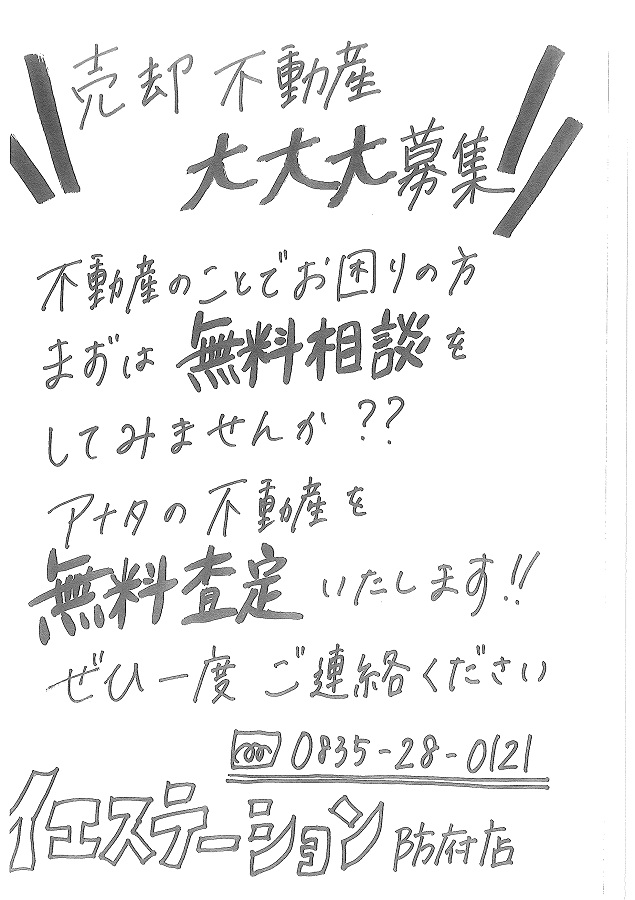 売却不動産
大大大募集
不動産のことでお困りの方
まずは無料相談を
してみませんか??
アナタの不動産を
無料査定いたします!!
ぜひ一度ご連絡ください
0835-28-0121
イエステーション防府店